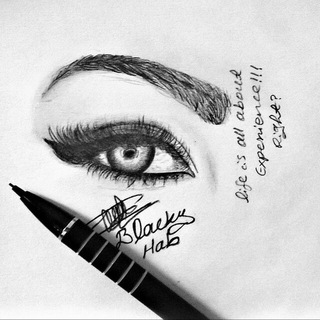 life is all about
Experience!!!
Right?
Blacky
Hab